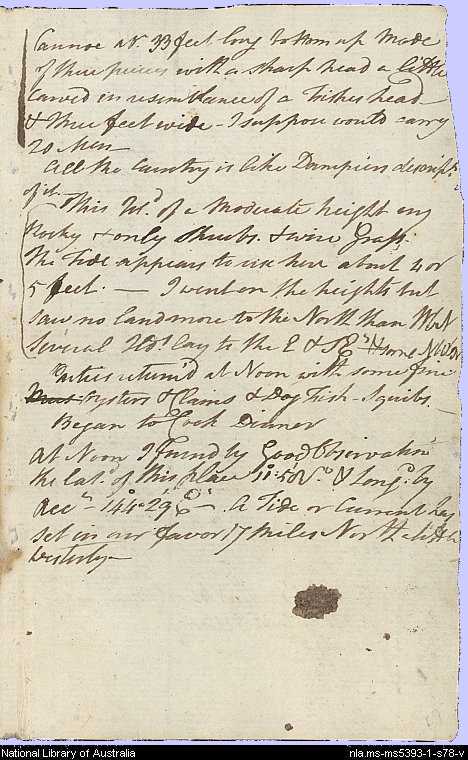 Cannoe abt. 33 feet long bottom up made
of three pieces with a sharp head a little
Carved in resemblance of a Fishes head
& three feet wide - I suppose would carry
20 Men
All the Country is like Dampiers descript
of it -
This Isd. of a Moderate height very
Rocky & only Shrubs & wire Grass.
The Tide appears to rise here about 4 or
5 feet. — I went on the heights but
saw no land more to the North than WbN
Several Isds. lay to the E & SE & some NW
Parties return'd at Noon with some fine
Oysters & Clams & Dog Fish - Squibs. -
Began to Cook Dinner
At Noon I found by Good Observation
the Latd. of this place 11:58 So. & Longd. by
Recn. 144:29 E - A Tide or Current has
set in our favor 17 Miles North a little
Westerly -
National Library of Australia nla.ms-ms5393-1-s78-v